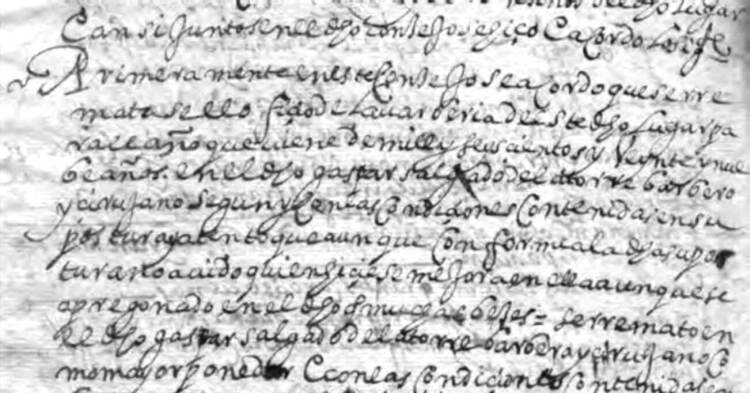 vecinos del dho lugar
E ansi Juntos en el dho conseJo se hiço E acordo lo sigte
Primeramente en este ConseJo se acordo que se rre
matase ello fiçio de la varberia de este dho Lugar pa
ra el año que viene de mill y seiscientos y Veynte y nue
be años. en el dho gaspar salgado de la torre barbero
y çirujano segun y Con las Condiciones Contenidas en su
postura y atento que aunque Conforme a la dha su pos
tura no a avido quien hiçiese meJora en ella aunque se
a pregonado en el dho muchas beçes = se rremato en
el dho gaspar salgado de la torre barbero y çirujano Co
mo mayor ponedor E con las Condiciones Contenidas en